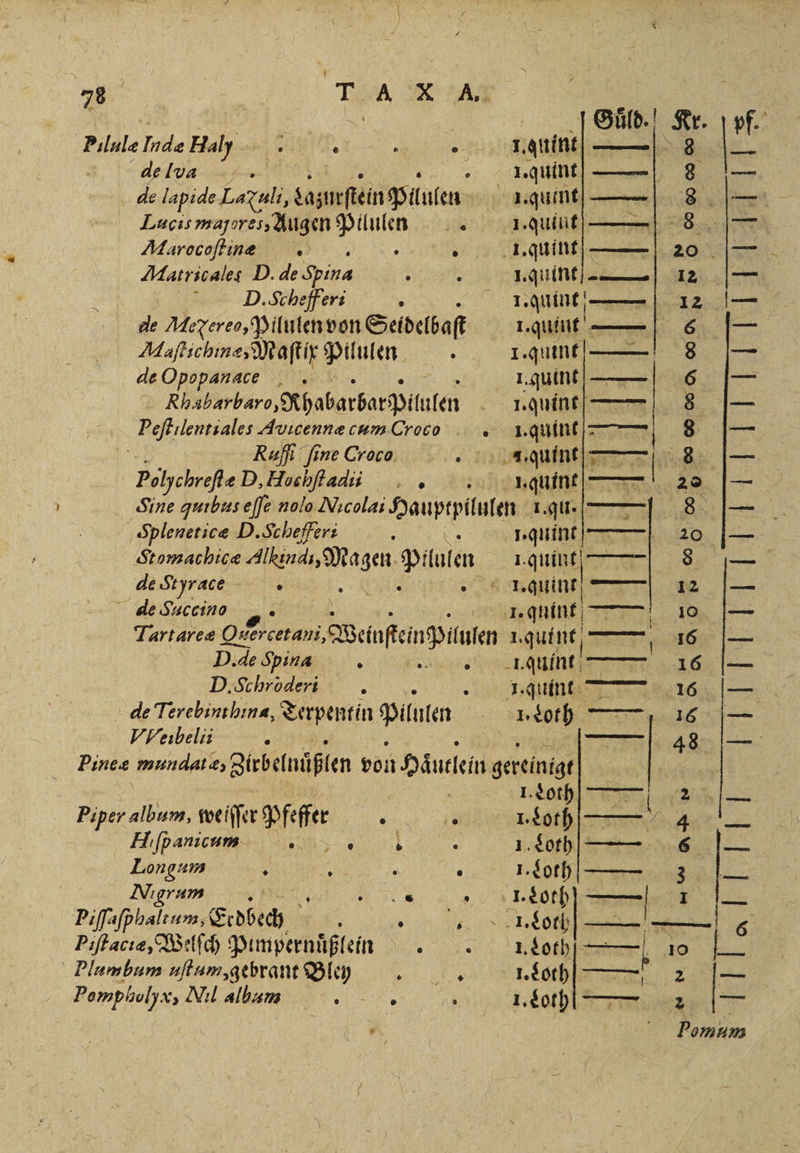 78 TAXA.
Güld. Kr. pf.
Pilulæ Indæ Haly . . . . 1.quint — 8 —
de Iva . . . . . . 1.quint — 8 —
de lapide Lazuli, Lazurstein Pilulen 1.quint — 8 —
Lucis majores, Augen Pilulen . 1.quint — 8 —
Marocostinæ . . . . 1.quint — 20 —
Matricales D. de Spina . . 1.quint — 12 —
D. Schefferi . . 1.quint — 12 —
de Mezereo, Pilulen von Seidelbast 1.quint — 6 —
Mastichinæ, Mastix Pilulen . 1.quint — 8 —
de Opopanace . . . . 1.quint — 6 —
Rhabarbaro, Rhabarbar Pilulen 1.quint — 8 —
Pestilentiales Avicennæ cum Croco . 1.quint — 8 —
Ruffi sine Croco . 1.quint — 8 —
Polychrestæ D. Hochstadii . . 1.quint — 20 —
Sine quibus esse nolo Nicolai Hauptpilulen 1.qu. — 8 —
Spleneticæ D. Schefferi . . 1.quint — 20 —
Stomachicæ Alkindi, Magen Pilulen 1.quint — 8 —
de Styrace . . . . 1.quint — 12 —
de Succino . . . . 1.quint — 10 —
Tartareæ Quercetani, Weinstein Pilulen 1.quint — 16 —
D. de Spina . . . 1.quint — 16 —
D. Schröderi . . . 1.quint — 16 —
de Terebinthina, Terpentin Pilulen 1.Loth — 16 —
VVeibelii . . . . . — 48 —
Pineæ mundatæ, Zirbelnüßlen von Häutlein gereinigt
1.Loth — 2 —
Piper album, weisser Pfeffer . . 1.Loth — 4 —
Hispanicum . . . . 1.Loth — 6 —
Longum . . . . 1.Loth — 3 —
Nigrum . . . . . 1.Loth — 1 —
Pissasphaltum, Erdbech . . . 1.Loth — — 6
Pistaciæ, Welsch Pimpernüßlein . . 1.Loth — 10 —
Plumbum ustum, gebrant Bley . . 1.Loth — 2 —
Pompholyx, Nil album . . . 1.Loth — 2 —
Pomum